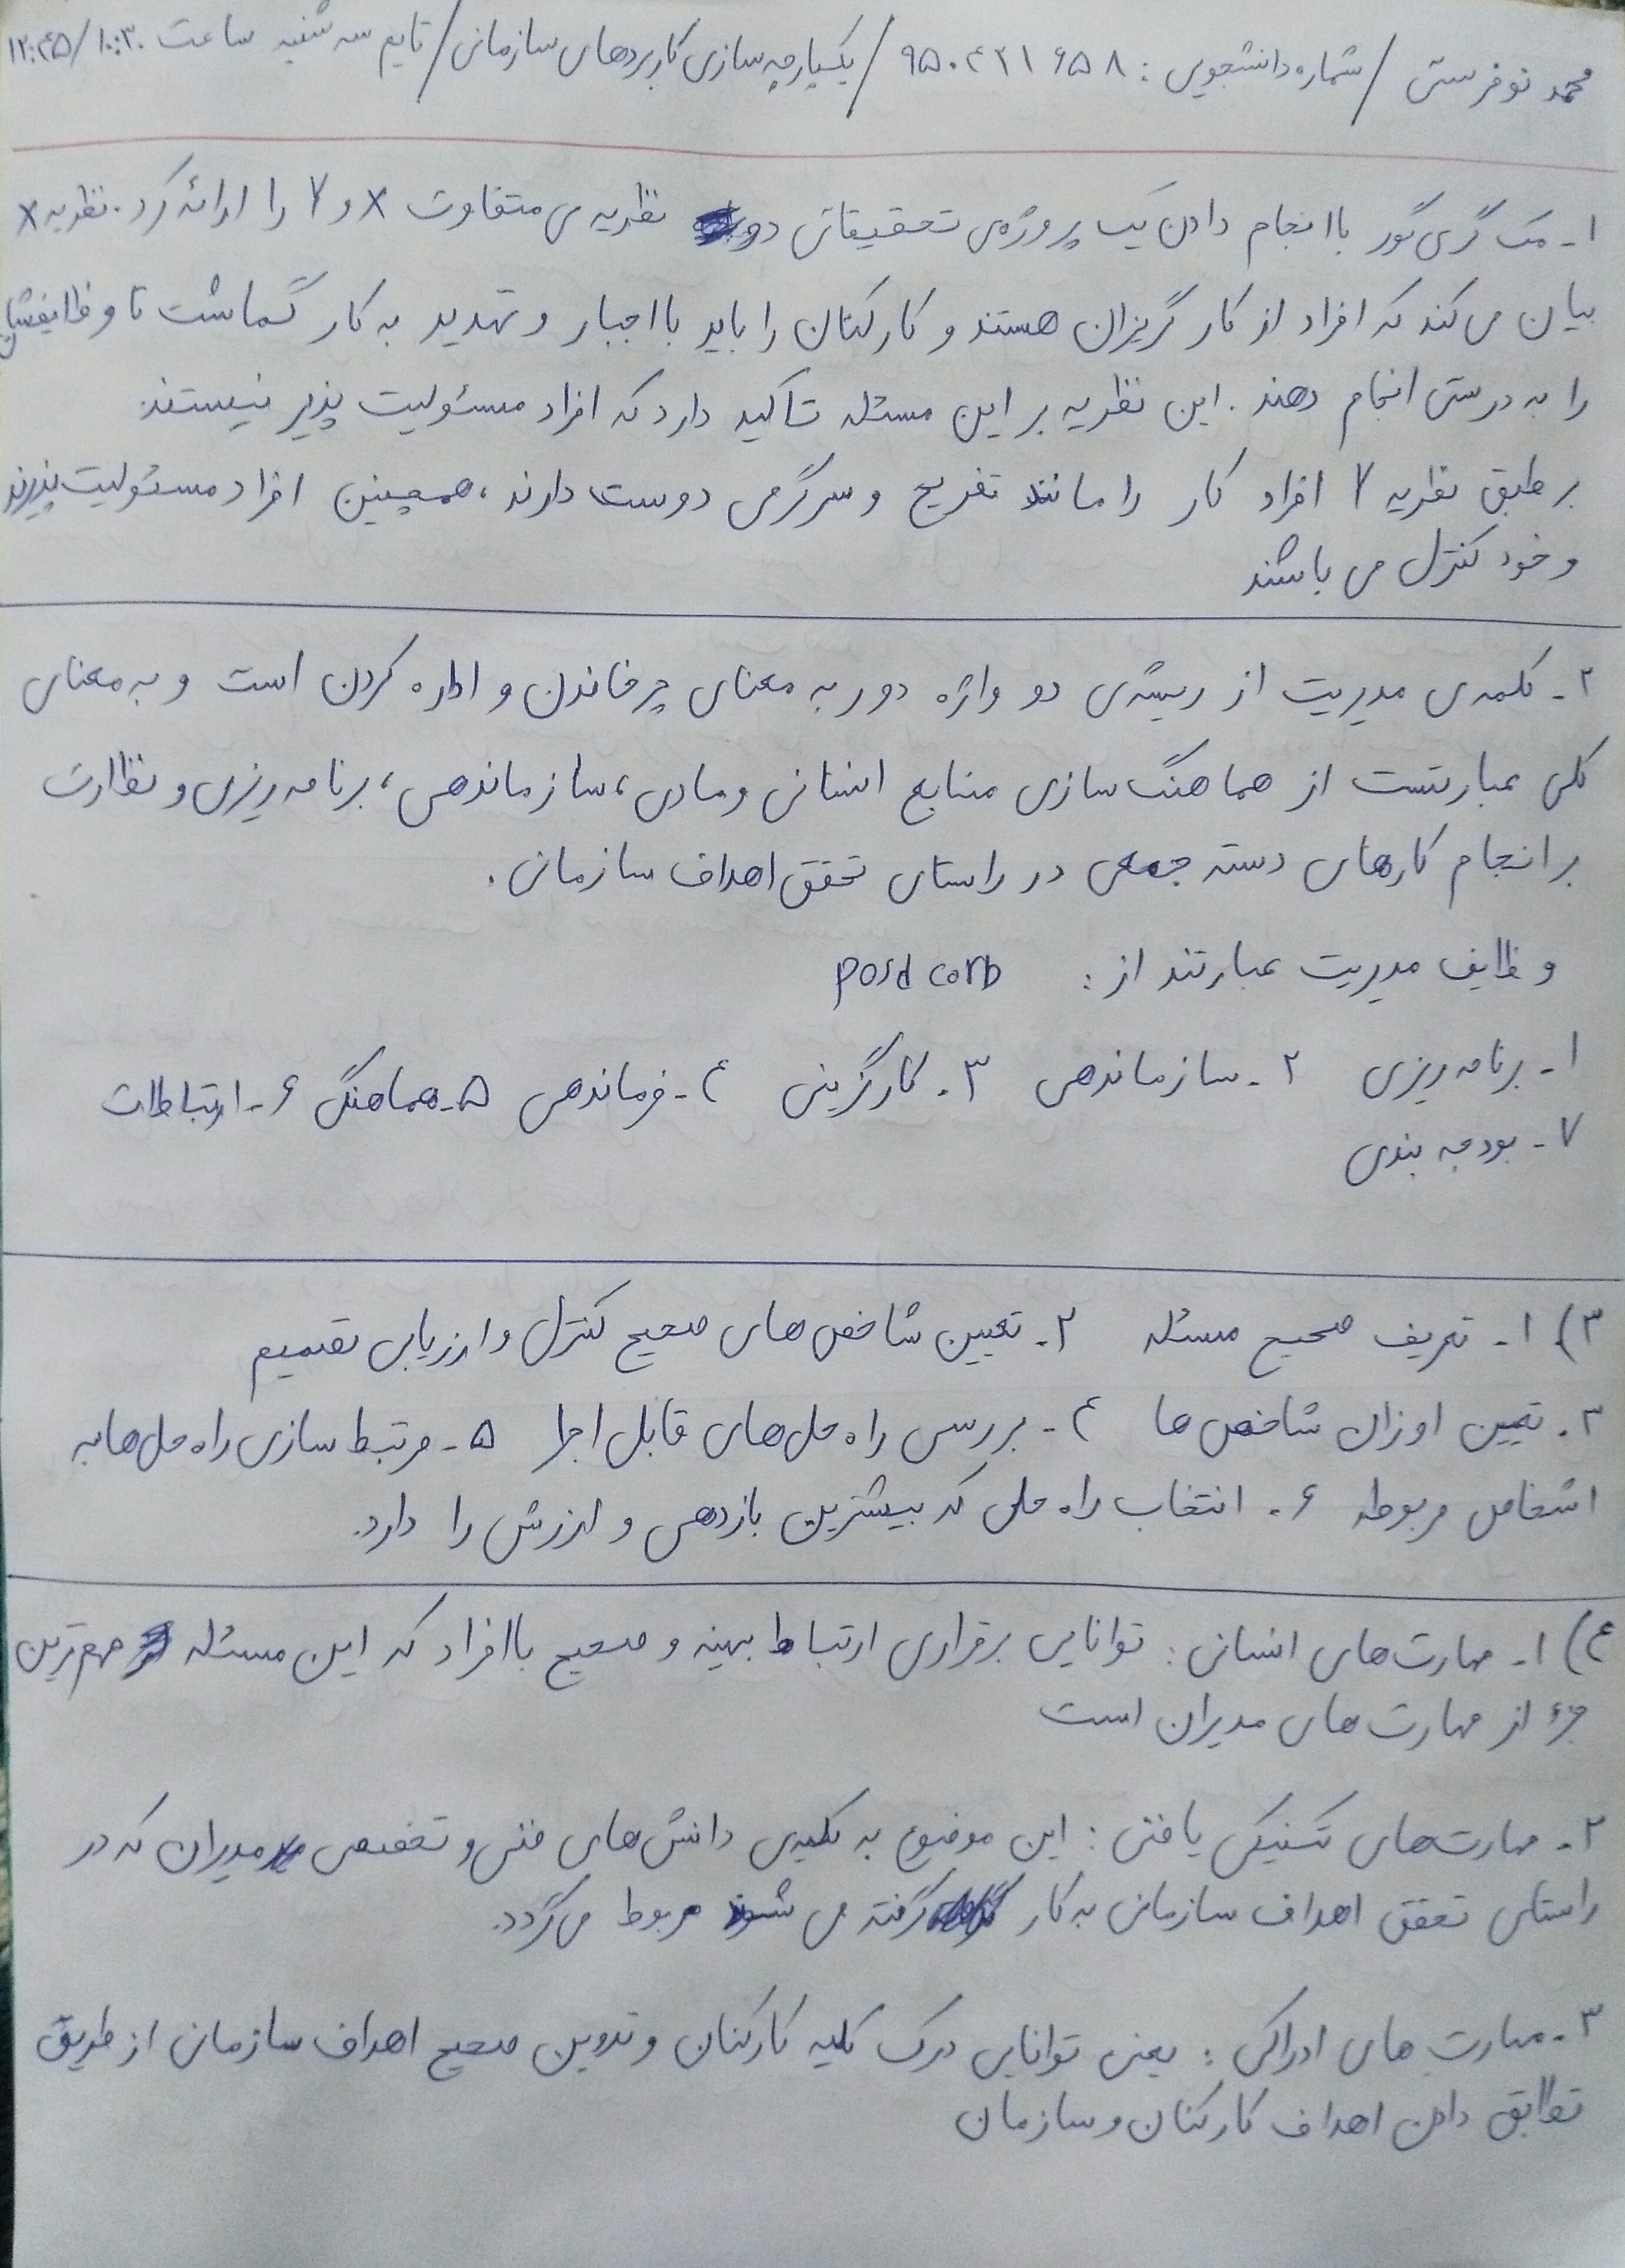 محمد نوفرستی / شماره دانشجویی: ۹۵۰۴۲۱۶۵۸ / یکپارچه سازی کاربردهای سازمانی / تایم سه شنبه ساعت ۱۰:۳۰/۱۲:۴۵
۱- مک گری گور با انجام دادن یک پروژه‌ی تحقیقاتی دو نظریه ی متفاوت X و Y را ارائه کرد. نظریه X
بیان می کند که افراد از کار گریزان هستند و کارکنان را باید با اجبار و تهدید به کار گماشت تا وظایفشان
را به درستی انجام دهند. این نظریه بر این مسئله تاکید دارد که افراد مسئولیت پذیر نیستند.
بر طبق نظریه Y افراد کار را مانند تفریح و سرگرمی دوست دارند، همچنین افراد مسئولیت پذیرند
و خود کنترل می باشند
۲- کلمه‌ی مدیریت از ریشه‌ی دو واژه دور به معنای چرخاندن و اداره کردن است و به معنای
کلی عبارتست از هماهنگ سازی منابع انسانی و مادی، سازماندهی، برنامه ریزی و نظارت
بر انجام کارهای دسته جمعی در راستای تحقق اهداف سازمانی.
وظایف مدیریت عبارتند از: posd corb
۱- برنامه ریزی ۲- سازماندهی ۳- کارگزینی ۴- فرماندهی ۵- هماهنگی ۶- ارتباطات
۷- بودجه بندی
۳) ۱- تعریف صحیح مسئله ۲- تعیین شاخص های صحیح کنترل و ارزیابی تصمیم
۳- تعیین اوزان شاخص ها ۴- بررسی راه حل های قابل اجرا ۵- مرتبط سازی راه حل ها به
اشخاص مربوطه ۶- انتخاب راه حلی که بیشترین بازدهی و ارزش را دارد.
۴) ۱- مهارت های انسانی: توانایی برقراری ارتباط بهینه و صحیح با افراد که این مسئله مهم ترین
جزء از مهارت های مدیران است
۲- مهارت های تکنیکی یا فنی: این موضوع به کلیه‌ی دانش های فنی و تخصصی مدیران که در
راستای تحقق اهداف سازمانی به کار گرفته می شود مربوط می گردد.
۳- مهارت های ادراکی: یعنی توانایی درک کلیه کارکنان و تدوین صحیح اهداف سازمانی از طریق
تطابق دادن اهداف کارکنان و سازمان